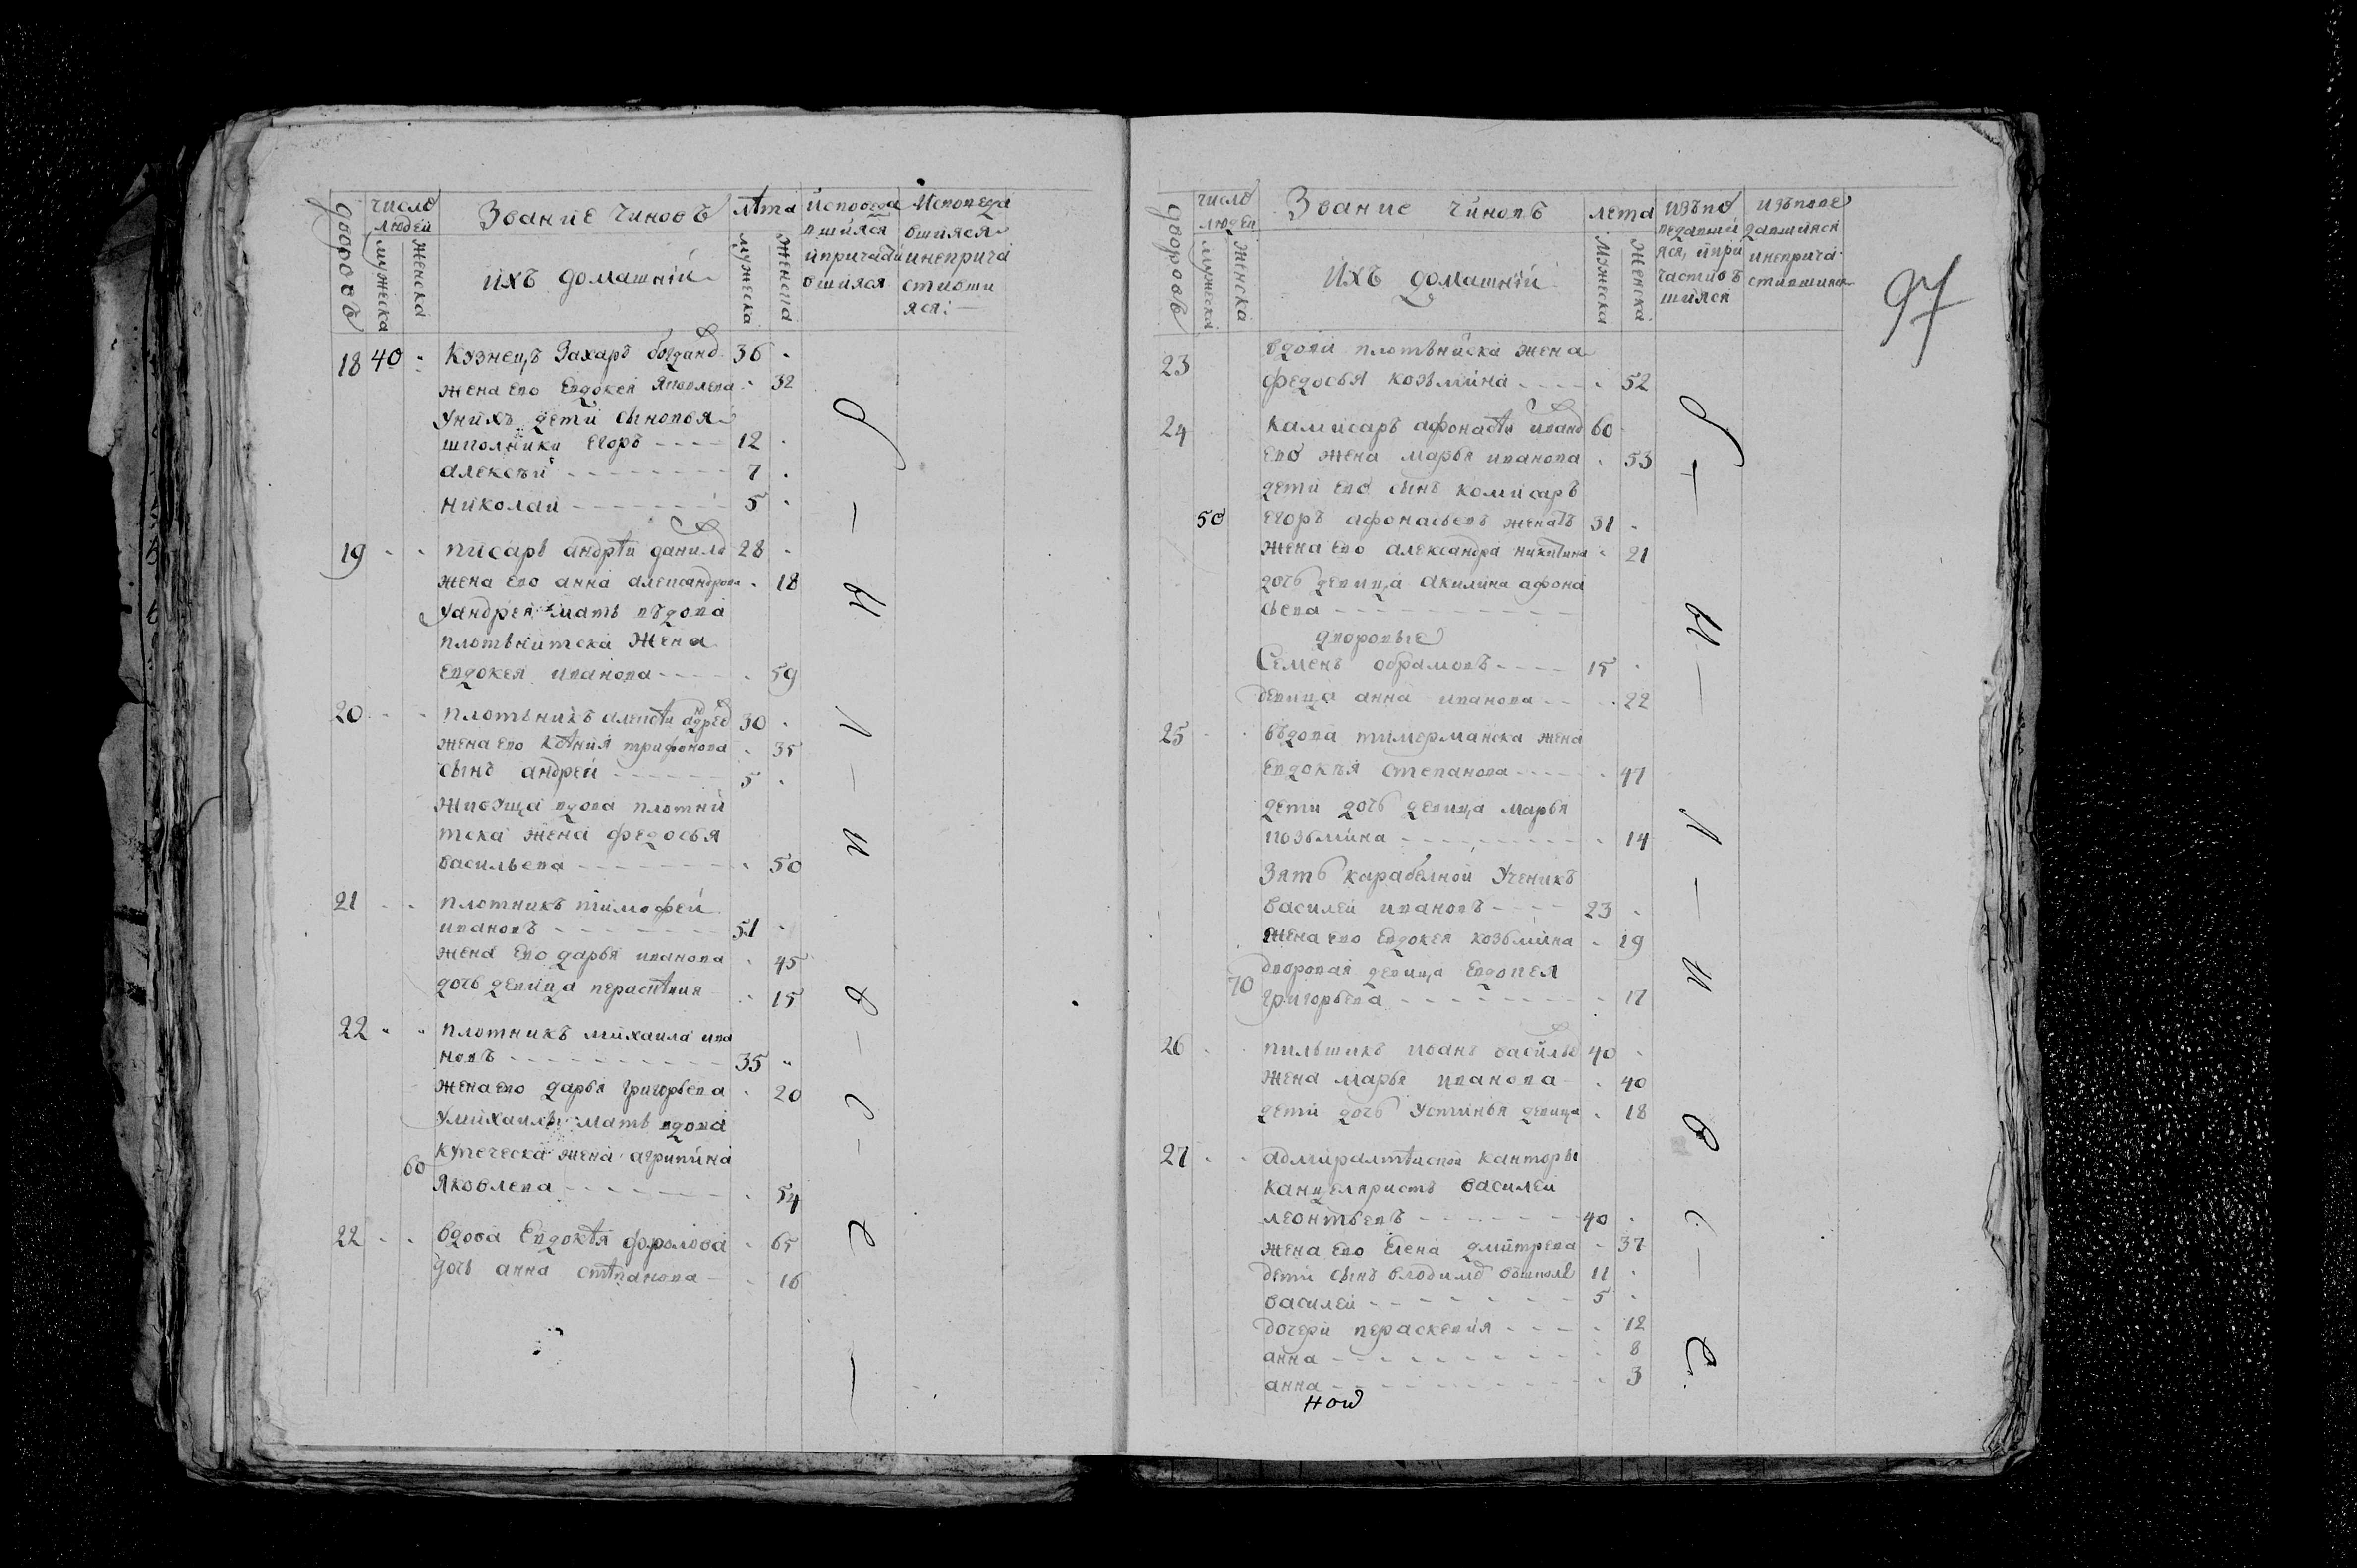 дворовъ
число
людей
мужеска
женска
Звание чиновъ
ихъ домашній
лѣта
мужеска
женска
исповеда
вшияся
ипричасти
вшияся
Исповеда
вшияся
инеприча
стивши
яся:
18 40 Кузнецъ Захаръ богдано 36
жена ево Евдокея Яковлева 32
Унихъ дети сыновья
школники Егоръ 12
алексѣй 7
николай 5
19 писарь андрѣи данило 28
жена ево анна александрова 18
Уандрея мать въдова
плотьнитска жена
Евдокея иванова 59
20 плотьникъ алексѣи андрее 30
жена ево трифонова 35
сынъ андрей 5
живуща вдова плотни
тска жена федосья
васильева 50
21 плотникъ тимофей
ивановъ 51
жена ево дарья иванова 45
дочь девица парасковия 15
22 плотникъ михаила ива
новъ 35
жена ево дарья григорьева 20
Умихаилы мать вдова
купеческа жена агрипина
60 Яковлева 54
22 вдова Евдокѣя форолова 65
дочь анна стѣпанова 16
дворовъ
число
людей
мужеска
женска
Звание чиновъ
ихъ домашній
лета
мужеска
женска
изъпо
ведавши
яся, ипри
частивъ
шияся
изъпове
давшияся
инеприча
стившияся
97
23 вдова плотьниска жена
федосья козьмина 52
24 камисаръ афонасѣи ивано 60
ево жена марья иванова 53
дети ево сынъ комисаръ
50 Егоръ афонасьевъ женатъ 31
жена ево александра никитина 21
дочь девица акилина афона
сьева
дворовые
Семенъ обрамовъ 15
девица анна иванова 22
25 въдова тимерманска жена
Евдокѣя степанова 47
дети дочь девица марья
козьмина 14
Зять карабелной Ученикъ
василей ивановъ 23
жена ево Евдокея козьмина 19
дворовая девица
70 григорьева 17
26 пильшикъ иванъ василье 40
жена марья иванова 40
дети дочь Устинья девица 18
27 адмиралтѣиской канторы
канцеляристъ василеи
леонтьевъ 40
жена ево Елена дмитрева 37
дети сынъ влодимо вшколе 11
василей 5
дочери параскевия 12
анна 8
анна 3